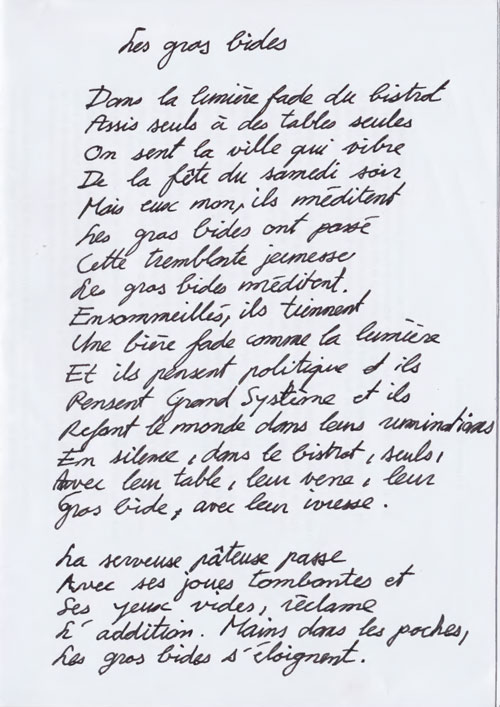 Les gros bides
Dans la lumière fade du bistrot
Assis seuls à des tables seules
On sent la ville qui vibre
De la fête du samedi soir
Mais eux non, ils méditent
Les gros bides ont passé
Cette tremblante jeunesse
Les gros bides méditent.
Ensommeillés, ils tiennent
Une bière fade comme la lumière
Et ils pensent politique et ils
Pensent Grand Système et ils
Refont le monde dans leurs ruminations
En silence, dans le bistrot, seuls,
Avec leur table, leur verre, leur
Gros bide, avec leur ivresse.
La serveuse pâteuse passe
Avec ses joues tombantes et
Ses yeux vides, réclame
L'addition. Mains dans les poches,
Les gros bides s'éloignent.